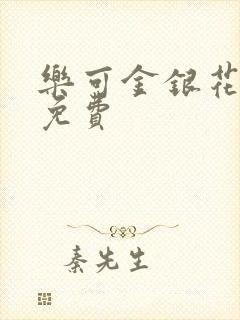 樂可金銀花
免費
秦先生